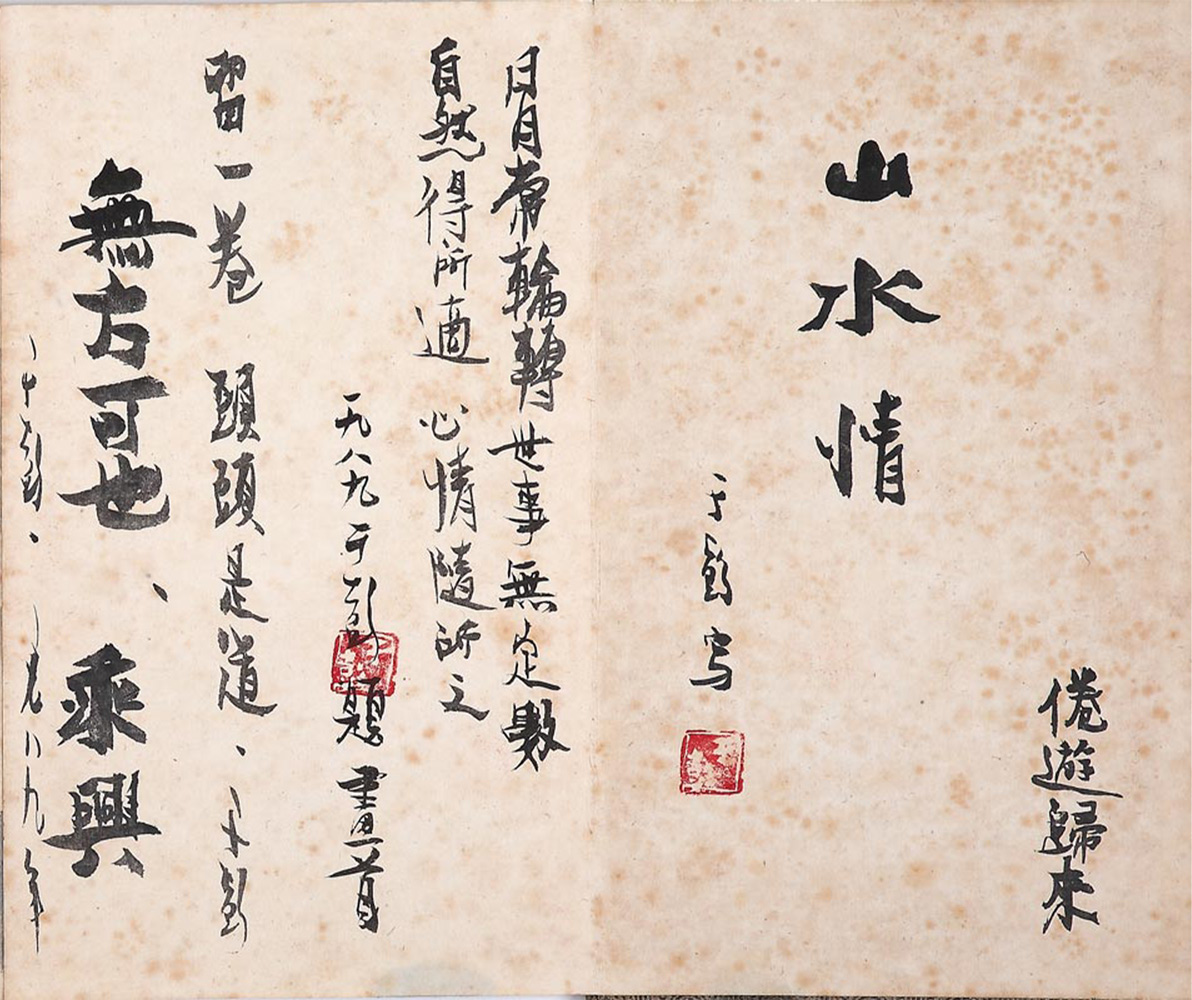 倦遊歸來
山水情
于彭写
日月常輪轉世事無定數
自然得所適心情隨所之
一九八九于彭題畫首
留一卷 頭頭是道、于彭
無方可也、乘興
于彭、一九八九年